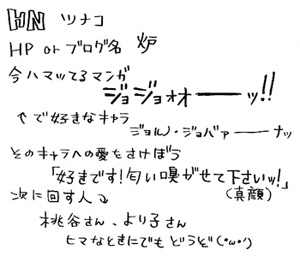 HN ツナコ
HP orブログ名 炉
今ハマッてるマンガ
ジョジョォオ――ッ!!
↑で好きなキャラ
ジョルノ・ジョバァ――ナッ
そのキャラへの愛をさけぼう
「好きです!匂い嗅がせて下さいッ!」
(真顔)
次に回す人↓
桃谷さん、より子さん
ヒマなときにでもどうぞ(・ω・')